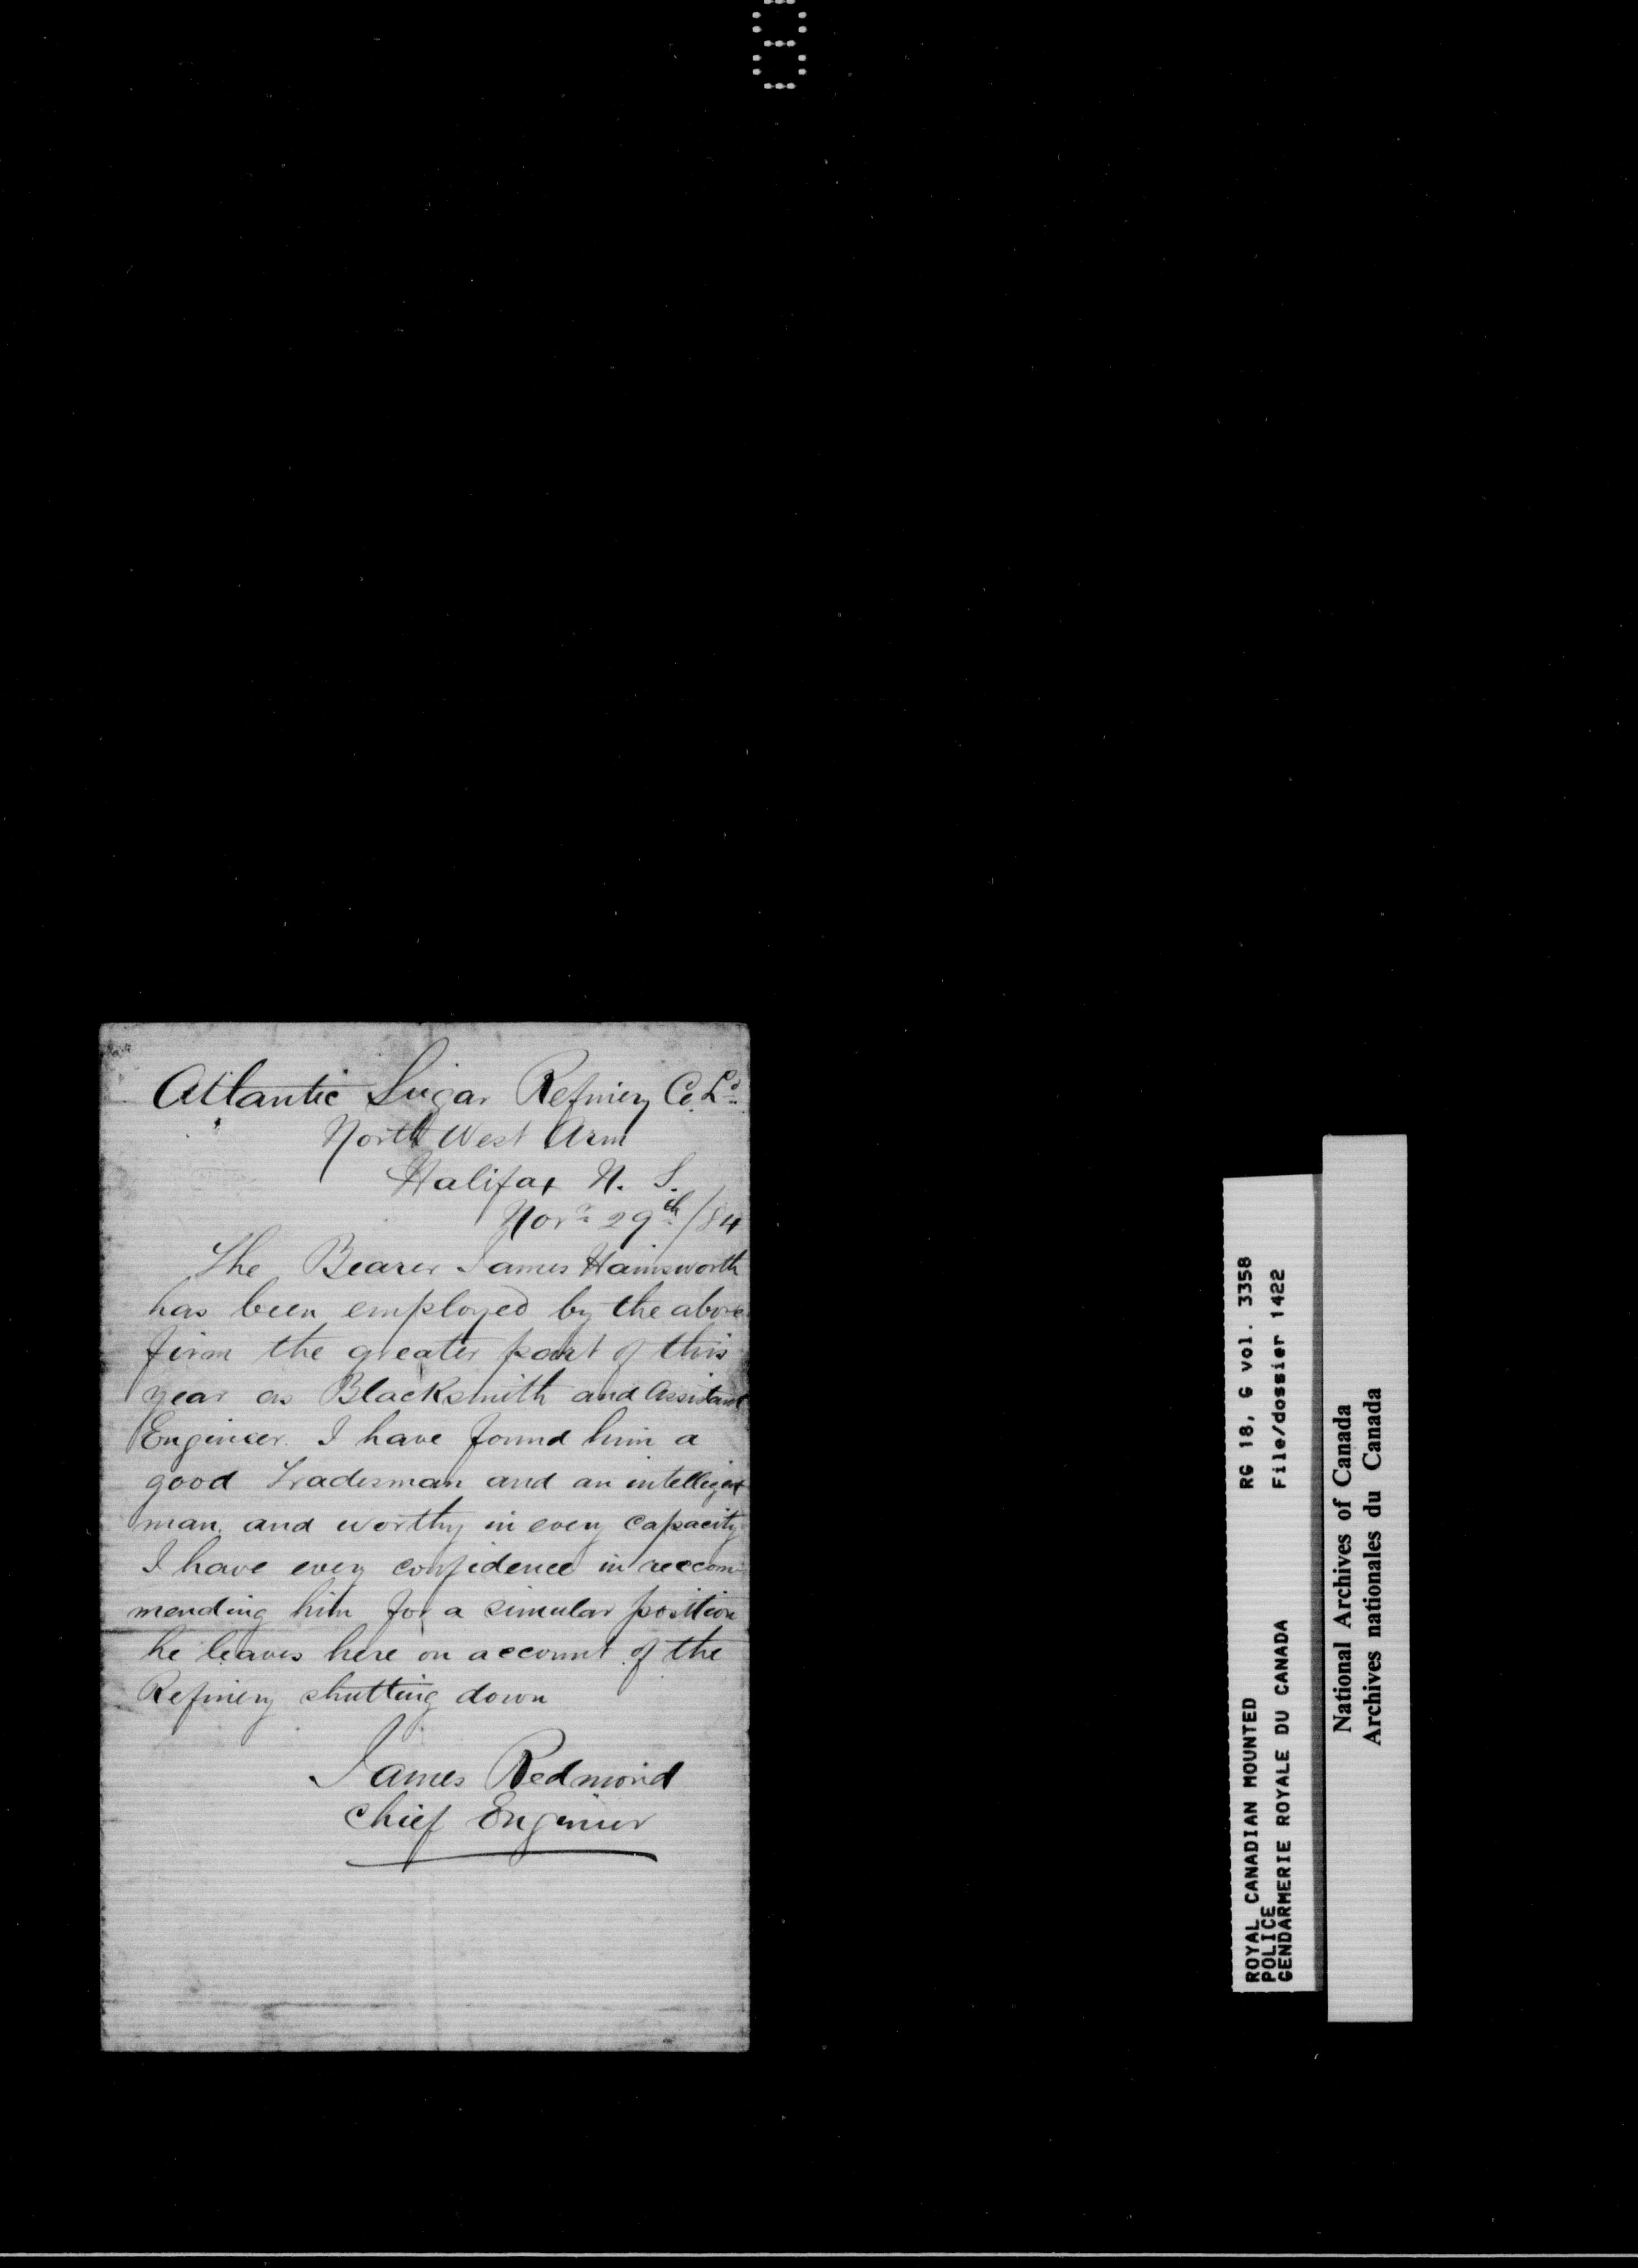 Atlantic Sugar Refinery Co. Ld.
North West Arm
Halifax N. S.
Novr 29th/84
The Bearer James Hainsworth
has been employed by the above
firm the greater part of this
year as Blacksmith and Assistant
Engineer. I have found him a
good Tradesman and an intelligent
man. and worthy in every capacity
I have every confidence in reccom-
mending him for a simular position
he leaves here on account of the
Refinery shutting down
James Redmond
Chief Engineer
ROYAL CANADIAN MOUNTED
POLICE
GENDARMERIE ROYALE DU CANADA
RG 18, G vol. 3358
File/dossier 1422
National Archives of Canada
Archives nationales du Canada